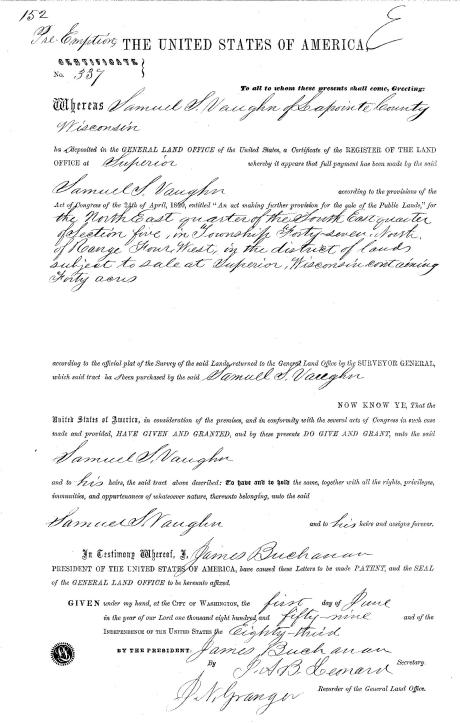 152
Pre-Emption THE UNITED STATES OF AMERICA,
CERTIFICATE
No. 337
To all to whom these presents shall come, Greeting:
Whereas Samuel S. Vaughn of Lapointe County
Wisconsin
has deposited in the GENERAL LAND OFFICE of the United States, a Certificate of the REGISTER OF THE LAND
OFFICE at Superior whereby it appears that full payment has been made by the said
Samuel S. Vaughn according to the provisions of the
Act of Congress of the 24th of April, 1820, entitled "An act making further provision for the sale of the Public Lands," for
the North East quarter of the South East quarter
of Section five, in Township Forty-seven North,
of Range Four West, in the district of lands
subject to sale at Superior, Wisconsin containing
Forty acres
according to the official plat of the Survey of the said Lands, returned to the General Land Office by the SURVEYOR GENERAL,
which said tract has been purchased by the said Samuel S. Vaughn
NOW KNOW YE, That the
United States of America, in consideration of the premises, and in conformity with the several acts of Congress in such case
made and provided, HAVE GIVEN AND GRANTED, and by these presents DO GIVE AND GRANT, unto the said
Samuel S. Vaughn
and to his heirs, the said tract above described: To have and to hold the same, together with all the rights, privileges,
immunities, and appurtenances of whatsoever nature, thereunto belonging, unto the said
Samuel S. Vaughn and to his heirs and assigns forever.
In Testimony Whereof, I, James Buchanan
PRESIDENT OF THE UNITED STATES OF AMERICA, have caused these Letters to be made PATENT, and the SEAL
of the GENERAL LAND OFFICE to be hereunto affixed.
GIVEN under my hand, at the CITY OF WASHINGTON, the first day of June
in the year of our Lord one thousand eight hundred and fifty-nine and of the
INDEPENDENCE OF THE UNITED STATES the Eighty-third
BY THE PRESIDENT: James Buchanan
By J. A. B. Leonard Secretary.
J. N. Granger Recorder of the General Land Office.